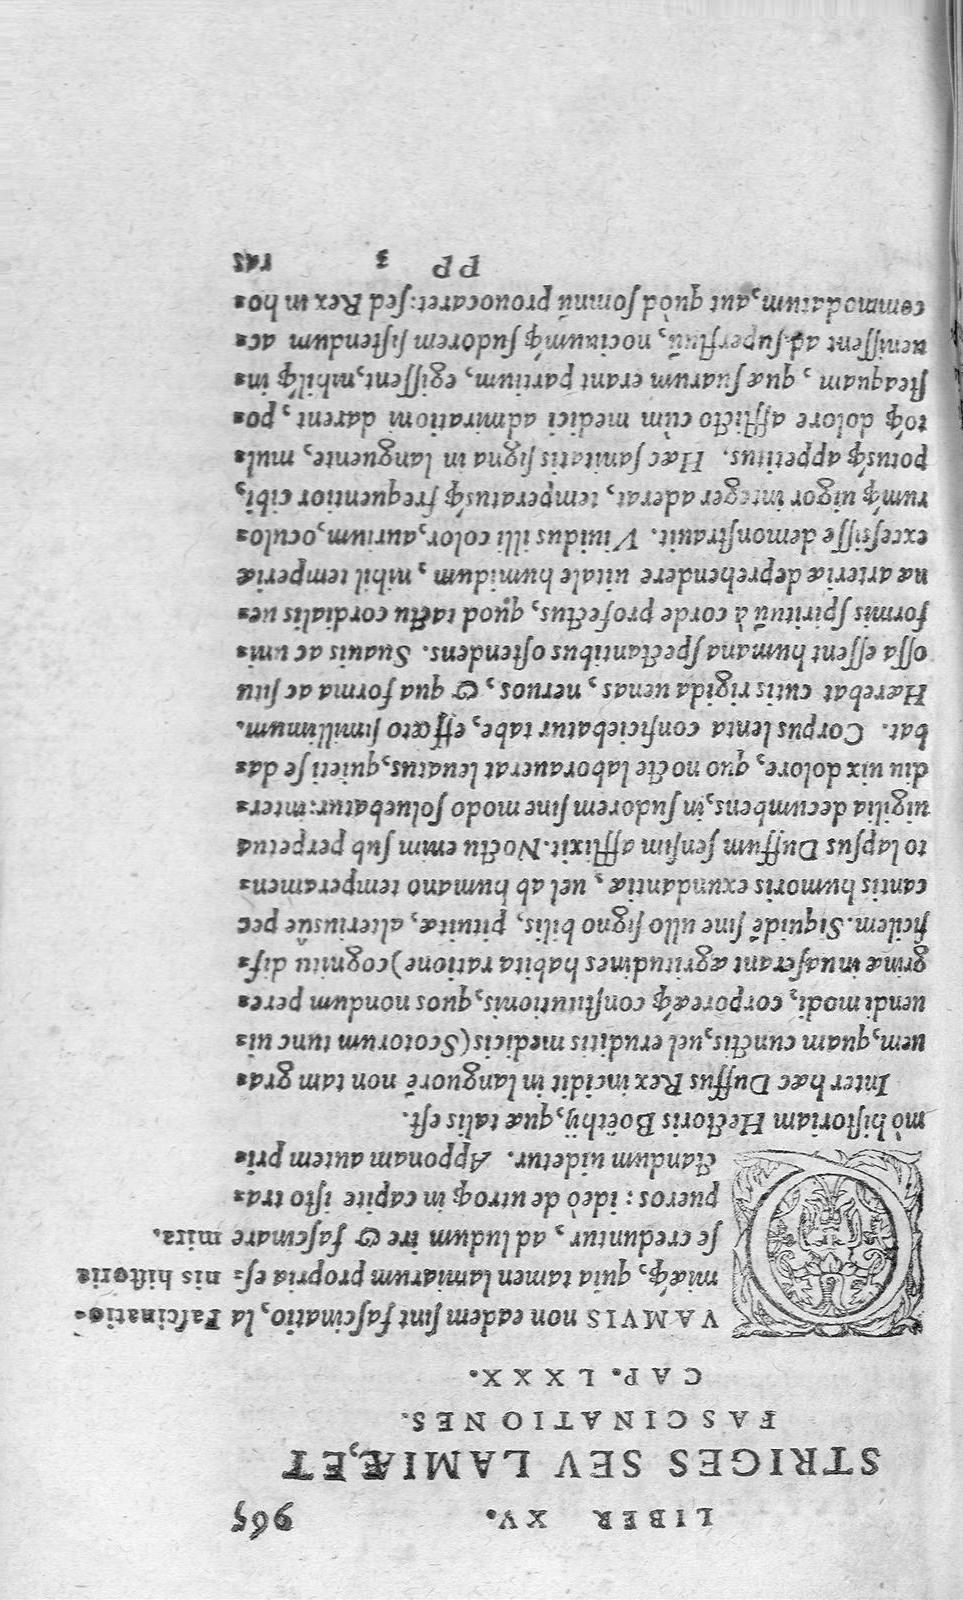 LIBER XV. 965
STRIGES SEV LAMIÆ, ET
FASCINATIONES.
CAP. LXXX.
QVAMVIS non eadem sint fascinatio, la
miæq́;, quia tamen lamiarum propria es=
se creduntur, ad ludum ire & fascinare
pueros: ideò de utroq; in capite isto tra=
ctandum uidetur. Apponam autem pri=
mò historiam Hectoris Boëthij, quæ talis est.
Fascinatio=
nis historia
mira.
Inter hæc Duffus Rex incidit in languorē non tam gra=
uem, quam cunctis, uel eruditis medicis (Scotorum tunc ui=
uendi modi, corporeæq́; constitutionis, quos nondum pere=
grinæ inuaserant ægritudines habita ratione) cognitu dif=
ficilem. Siquidē sine ullo signo bilis, pituitæ, alteriusūe pec
cantis humoris exundantiæ, uel ab humano temperamen=
to lapsus Duffum sensim afflixit. Noctu enim sub perpetua
uigilia decumbens, in sudorem sine modo soluebatur: inter=
diu uix dolore, quo nocte laborauerat leuatus, quieti se da=
bat. Corpus lenta conficiebatur tabe, effœto simillimum.
Hærebat cutis rigida uenas, neruos, & qua forma ac situ
ossa essent humana spectantibus ostendens. Suauis ac uni=
formis spirituū à corde profectus, quod tactu cordialis ue=
næ arteriæ deprehendere uitale humidum, nihil temperiæ
excessisse demonstrauit. Viuidus illi color, aurium, oculo=
rumq́; uigor integer aderat, temperatusq́; frequentior cibi,
potusq́; appetitus. Hæc sanitatis signa in languente, mul=
toq́; dolore afflicto cùm medici admirationi darent, po=
steaquam, quæ suarum erant partium, egissent, nihilq́; in=
uenissent ad superfluū, nociuumq́; sudorem sistendum ac=
commodatum, aut quòd somnū prouocaret: sed Rex in ho=
PP 3 ras